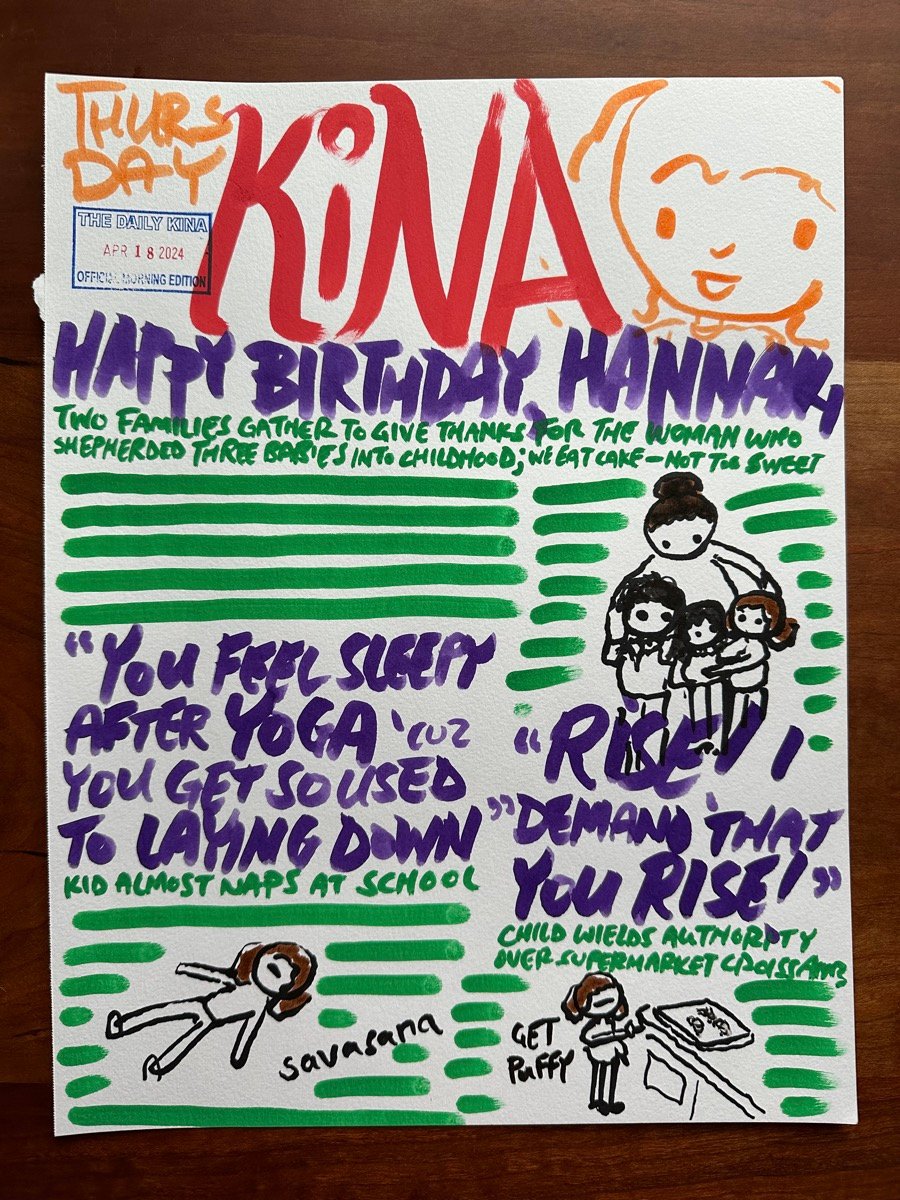 THURS
DAY
KiNA
THE DAILY KINA
APR 18 2024
OFFICIAL MORNING EDITION
HAPPY BIRTHDAY, HANNAH
TWO FAMILIES GATHER TO GIVE THANKS FOR THE WOMAN WHO
SHEPHERDED THREE BABIES INTO CHILDHOOD; WE EAT CAKE – NOT TOO SWEET
"YOU FEEL SLEEPY
AFTER YOGA 'CUZ
YOU GET SO USED
TO LAYING DOWN"
KID ALMOST NAPS AT SCHOOL
savasana
"RISE! I
DEMAND THAT
YOU RISE!"
CHILD WIELDS AUTHORITY
OVER SUPERMARKET CROISSANT
GET
PUFFY